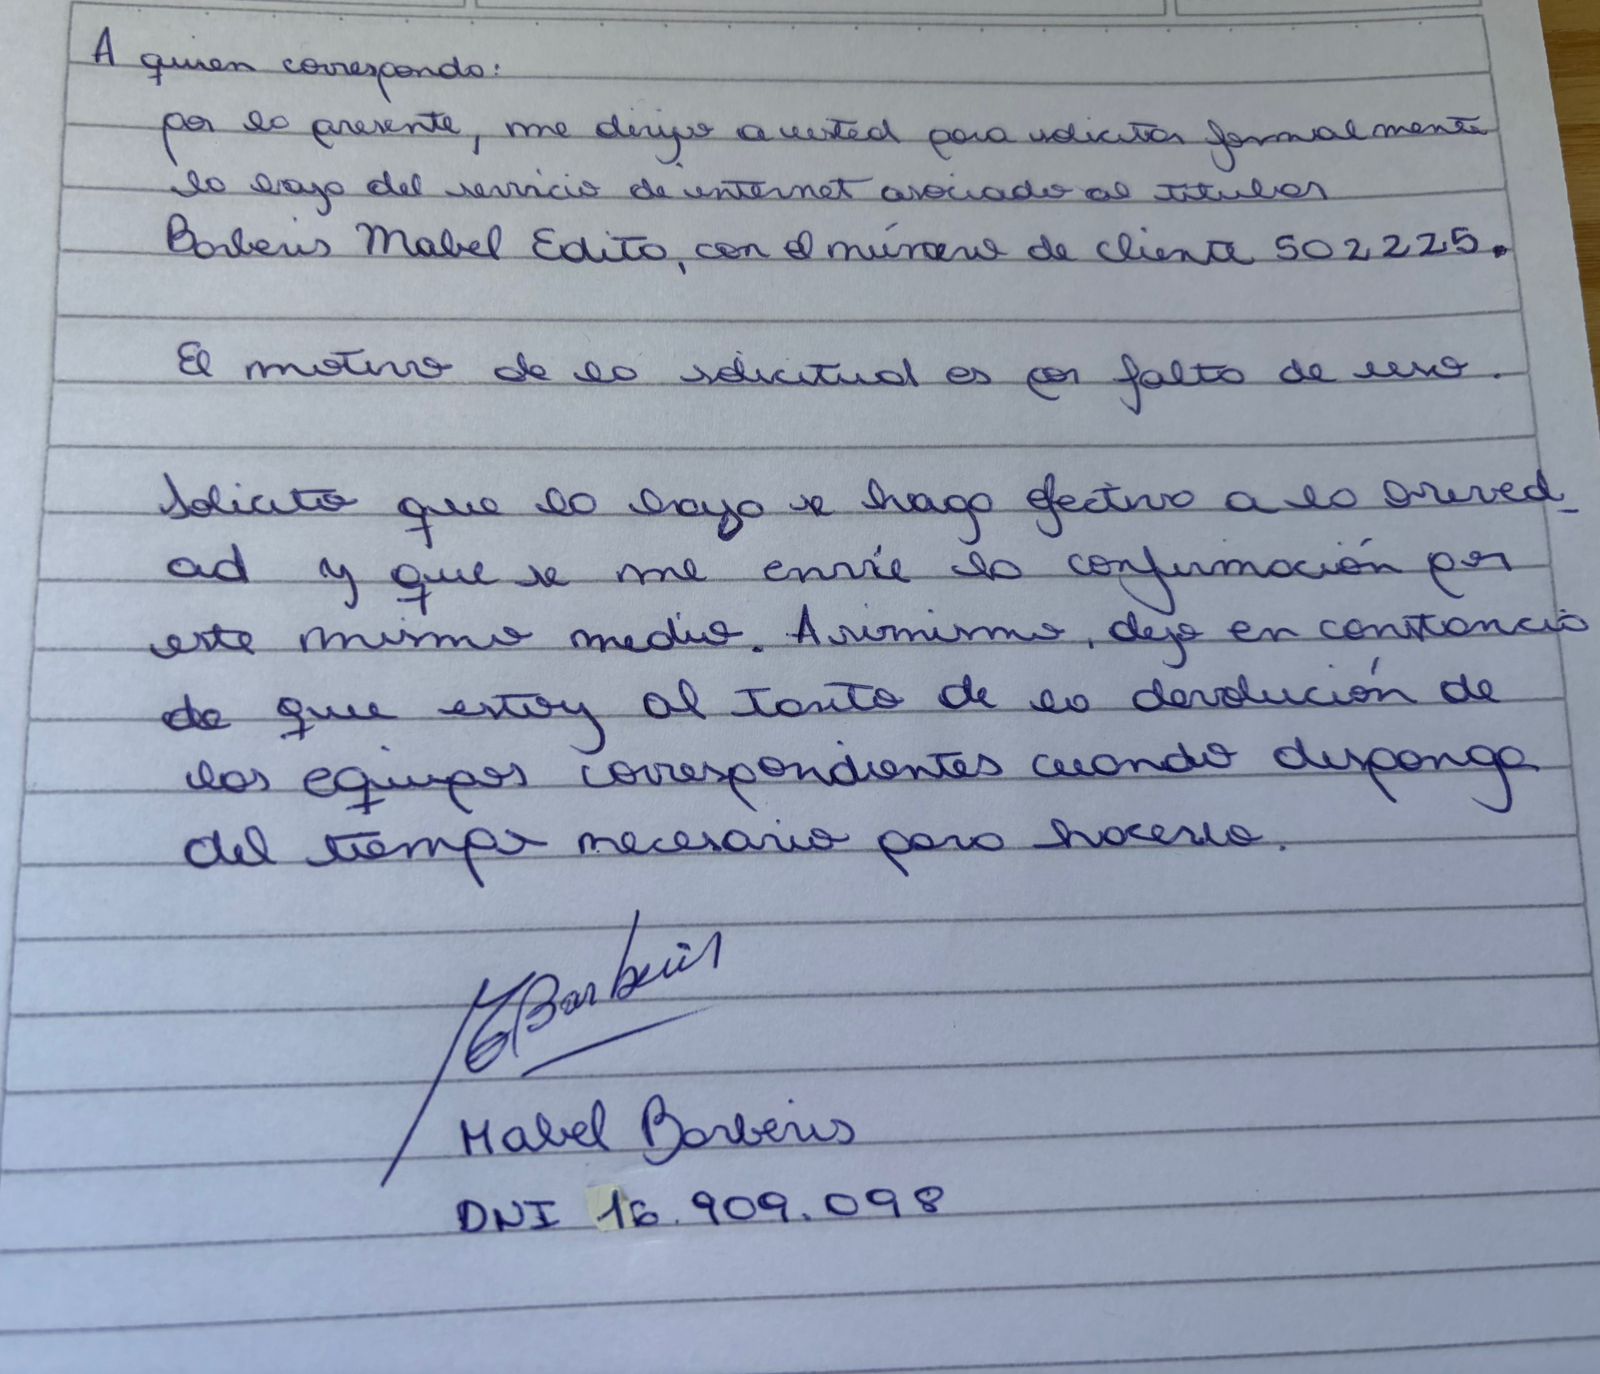 A quien corresponda:
por la presente, me dirijo a usted para solicitar formalmente
la baja del servicio de internet asociado al titular
Barberis Mabel Edita, con el número de cliente 502225.
El motivo de la solicitud es por falta de uso.
Solicito que la baja se haga efectivo a la breved_
ad y que se me envíe la confirmación por
este mismo medio. Asimismo, dejo en constancia
de que estoy al tanto de la devolución de
los equipos correspondientes cuando disponga
del tiempo necesario para hacerlo.
MBarberis
Mabel Barberis
DNI 16.909.098